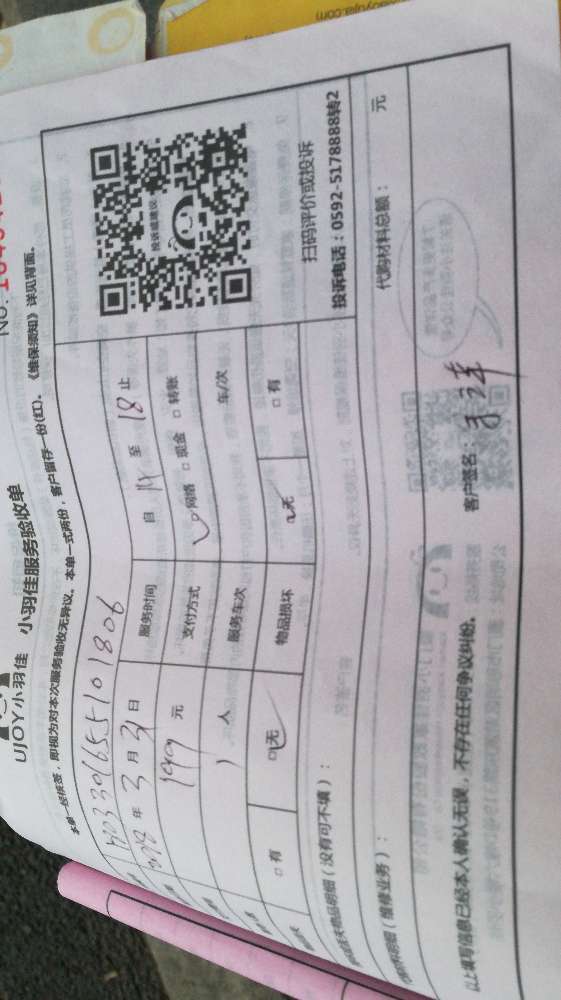 UJOY小羽佳 小羽佳服务验收单
本单一经核签，即视为对本次服务验收无异议。本单一式两份，客户留存一份(红)。《维保须知》详见背面。
年 3 月 31 日
服务时间 自 至 18 止
199 元
支付方式 网络 □ 现金 □ 转账
1 人
服务车次 车/次
□ 有 无
物品损坏 无 □ 有
扫码评价或投诉
投诉电话：0592-5178888转2
投诉或建议
物品明细（没有可不填）：
明细（维修业务）：
代购材料总额： 元
以上填写信息已经本人确认无误，不存在任何争议纠纷。
客户签名：